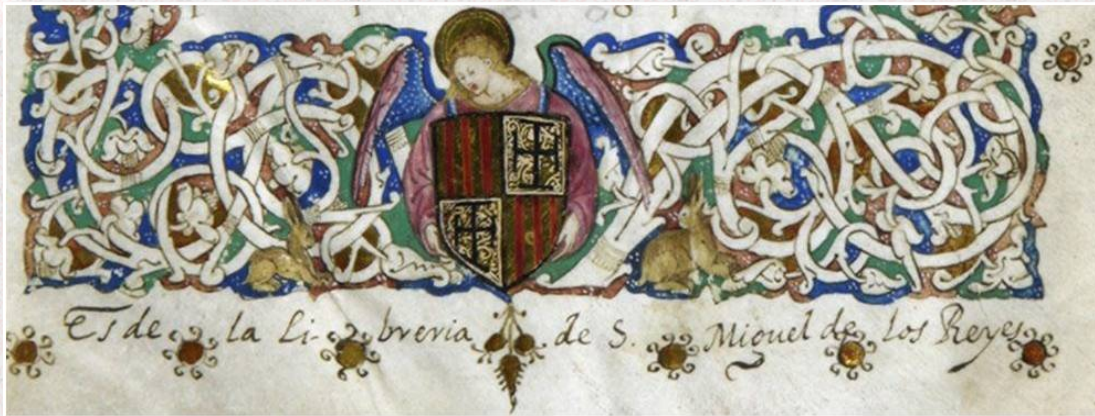 Es de la Li- breria de S. Miguel de los Reyes